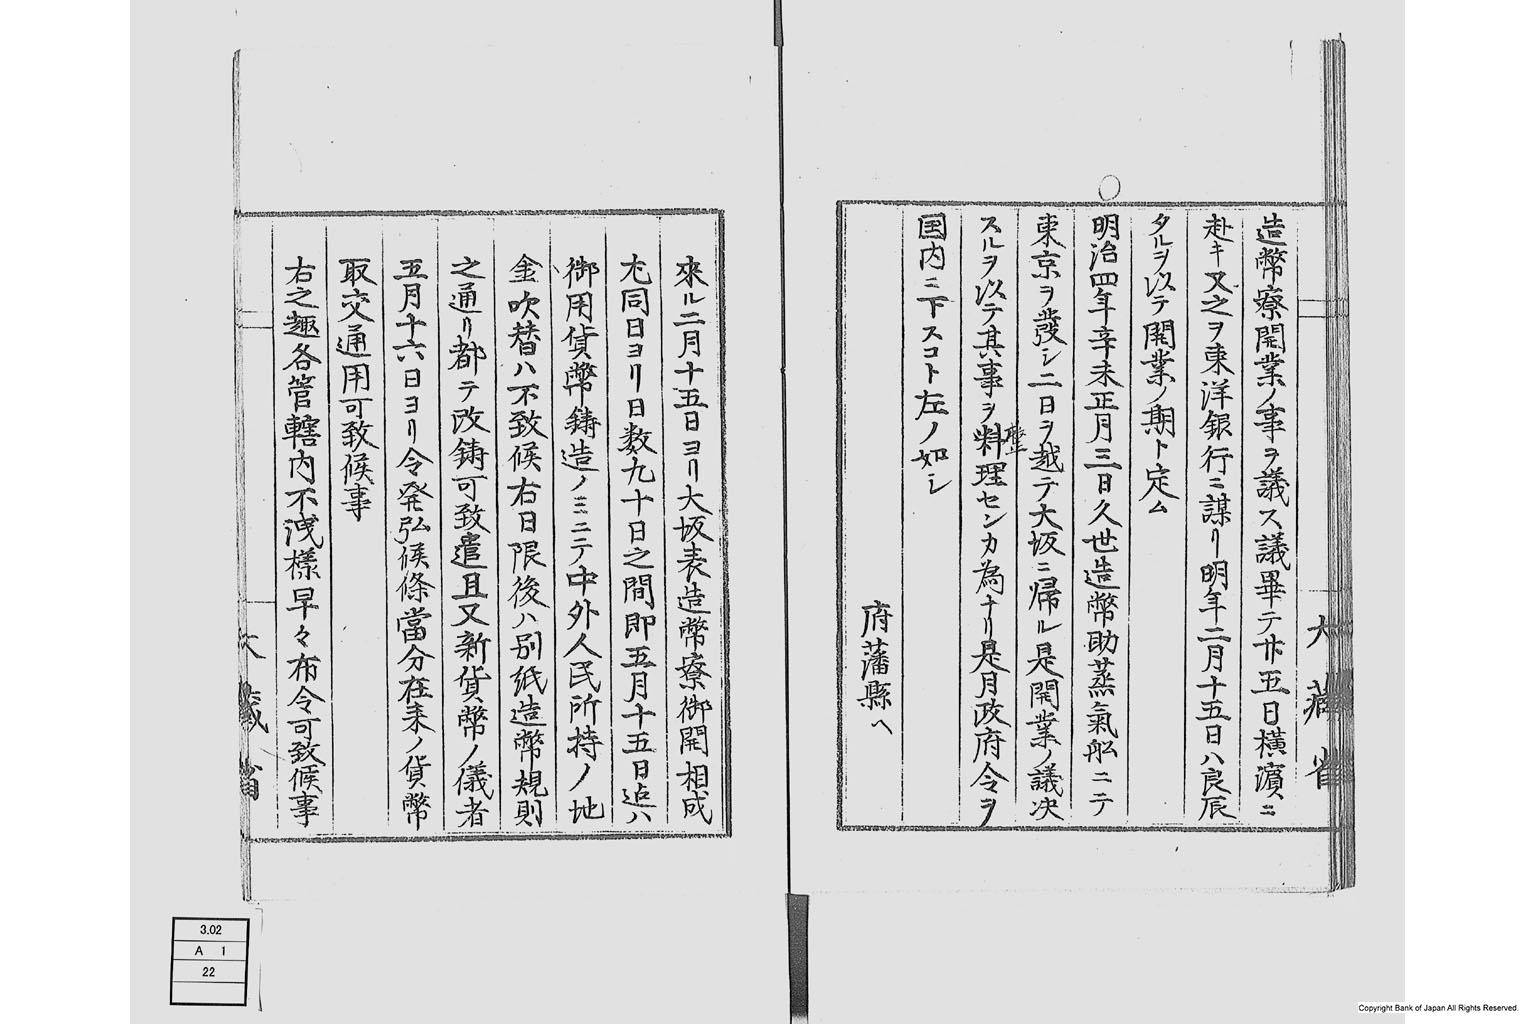 造幣寮開業ノ事ヲ議ス議畢テ廿五日横濱ニ
赴キ又之ヲ東洋銀行ニ謀リ明年二月十五日ハ良辰
タルヲ以テ開業ノ期ト定ム
明治四年辛未正月三日久世造幣助蒸氣舩ニテ
東京ヲ發シ二日ヲ越テ大坂ニ帰ル是開業ノ議决
スルヲ以テ其事ヲ料理センカ為ナリ是月政府令ヲ
整
国内ニ下スコト左ノ如シ
府藩縣ヘ
大藏省
來ル二月十五日ヨリ大坂表造幣寮御開相成
尤同日ヨリ日数九十日之間即五月十五日迠ハ
御用貨幣鋳造ノミニテ中外人民所持ノ地
金吹替ハ不致候右日限後ハ別紙造幣規則
之通リ都テ改鋳可致遣且又新貨幣ノ儀者
五月十六日ヨリ令発弘候條當分在来ノ貨幣
取交通用可致候事
右之趣各管轄内不洩様早々布令可致候事
大藏省
3.02
A 1
22
Copyright Bank of Japan All Rights Reserved.